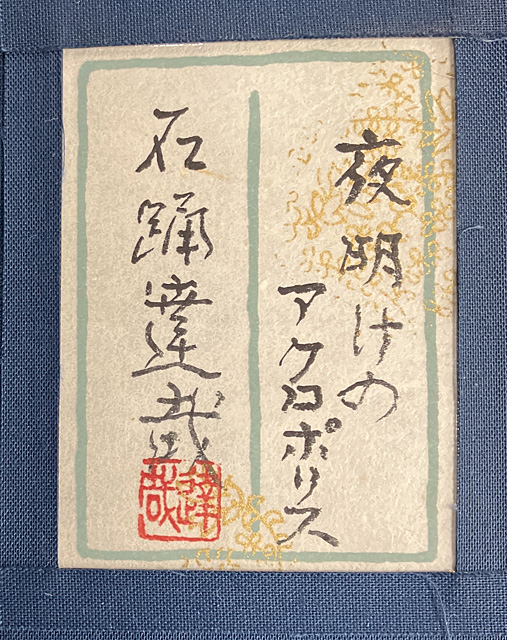 夜明けの
アクロポリス
石踊達哉
達哉